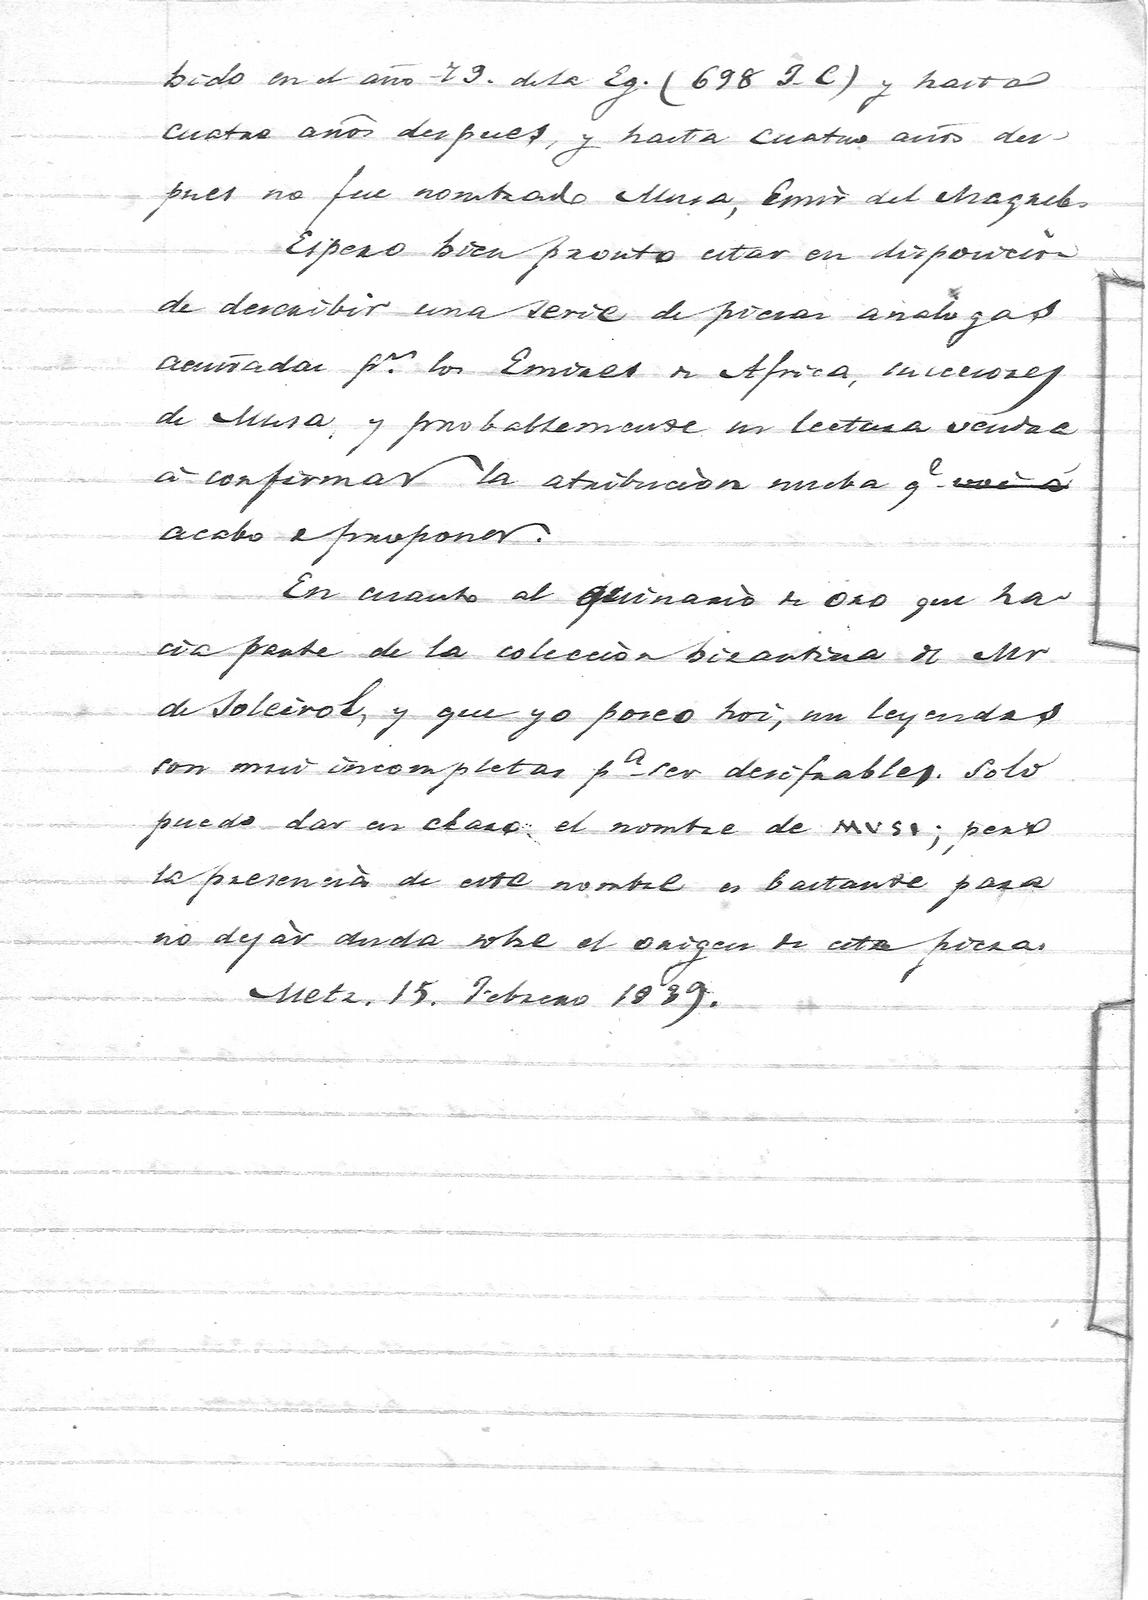 bido en el año 79. de la Eg. (698 J. C) y hasta
cuatro años despues, y hasta cuatro años des-
pues no fue nombrado Musa, Emir del Magreb.
Espero bien pronto estar en disposicion
de describir una serie de piezas análogas
acuñadas pr. los Emires de Africa, sucesores
de Musa, y probablemente su lectura vendrá
á confirmar la atribucion nueba qe voi á
acabo e proponer.
En cuanto al quinario de oro que ha-
cia parte de la coleccion bizantina de Mr
de Soleirol, y que yo poseo hoi, sus leyendas
son mui incompletas pa ser descifrables. Solo
puedo dar en claro: el nombre de MVSI; pero
la presencia de este nombre es bastante para
no dejàr duda sobre el origen de esta pieza.
Metz. 15. Febrero 1839.